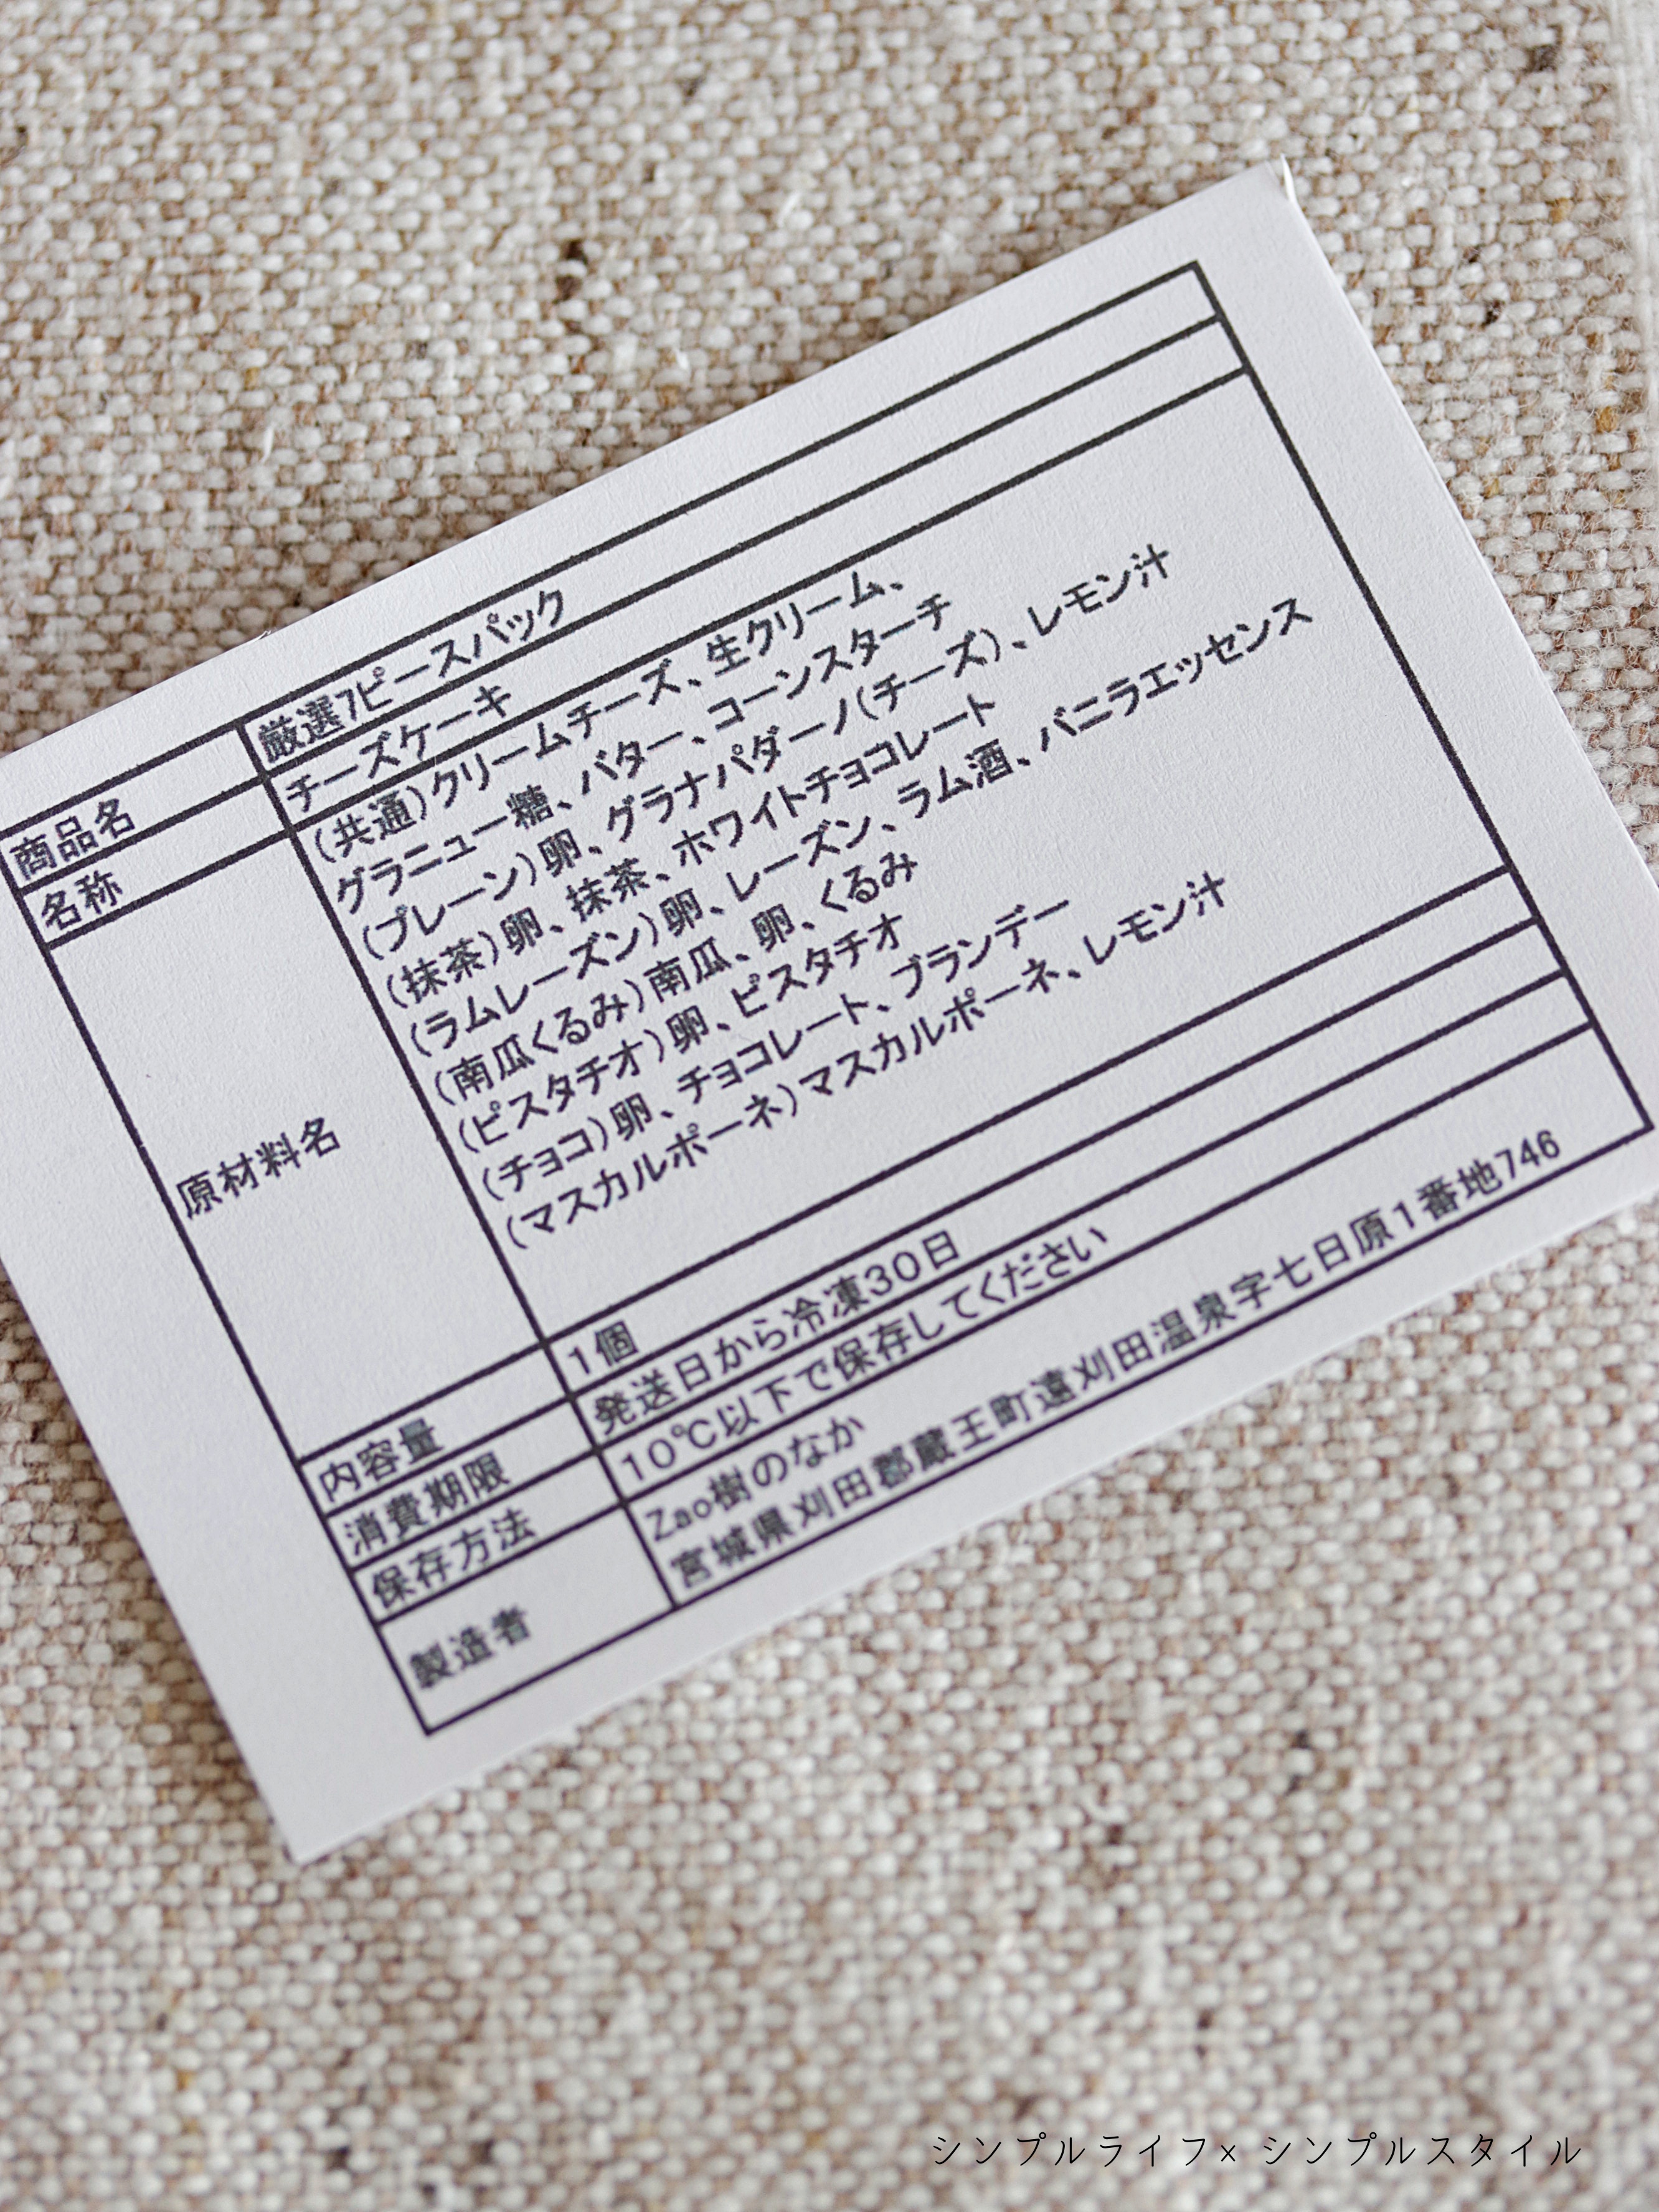 商品名 厳選7ピースパック
名称 チーズケーキ
原材料名
(共通)クリームチーズ、生クリーム、
グラニュー糖、バター、コーンスターチ
(プレーン)卵、グラナパダーノ(チーズ)、レモン汁
(抹茶)卵、抹茶、ホワイトチョコレート
(ラムレーズン)卵、レーズン、ラム酒、バニラエッセンス
(南瓜くるみ)南瓜、卵、くるみ
(ピスタチオ)卵、ピスタチオ
(チョコ)卵、チョコレート、ブランデー
(マスカルポーネ)マスカルポーネ、レモン汁
内容量 1個
消費期限 発送日から冷凍30日
保存方法 10℃以下で保存してください
製造者
Zao樹のなか
宮城県刈田郡蔵王町遠刈田温泉字七日原1番地746
シンプルライフ× シンプルスタイル